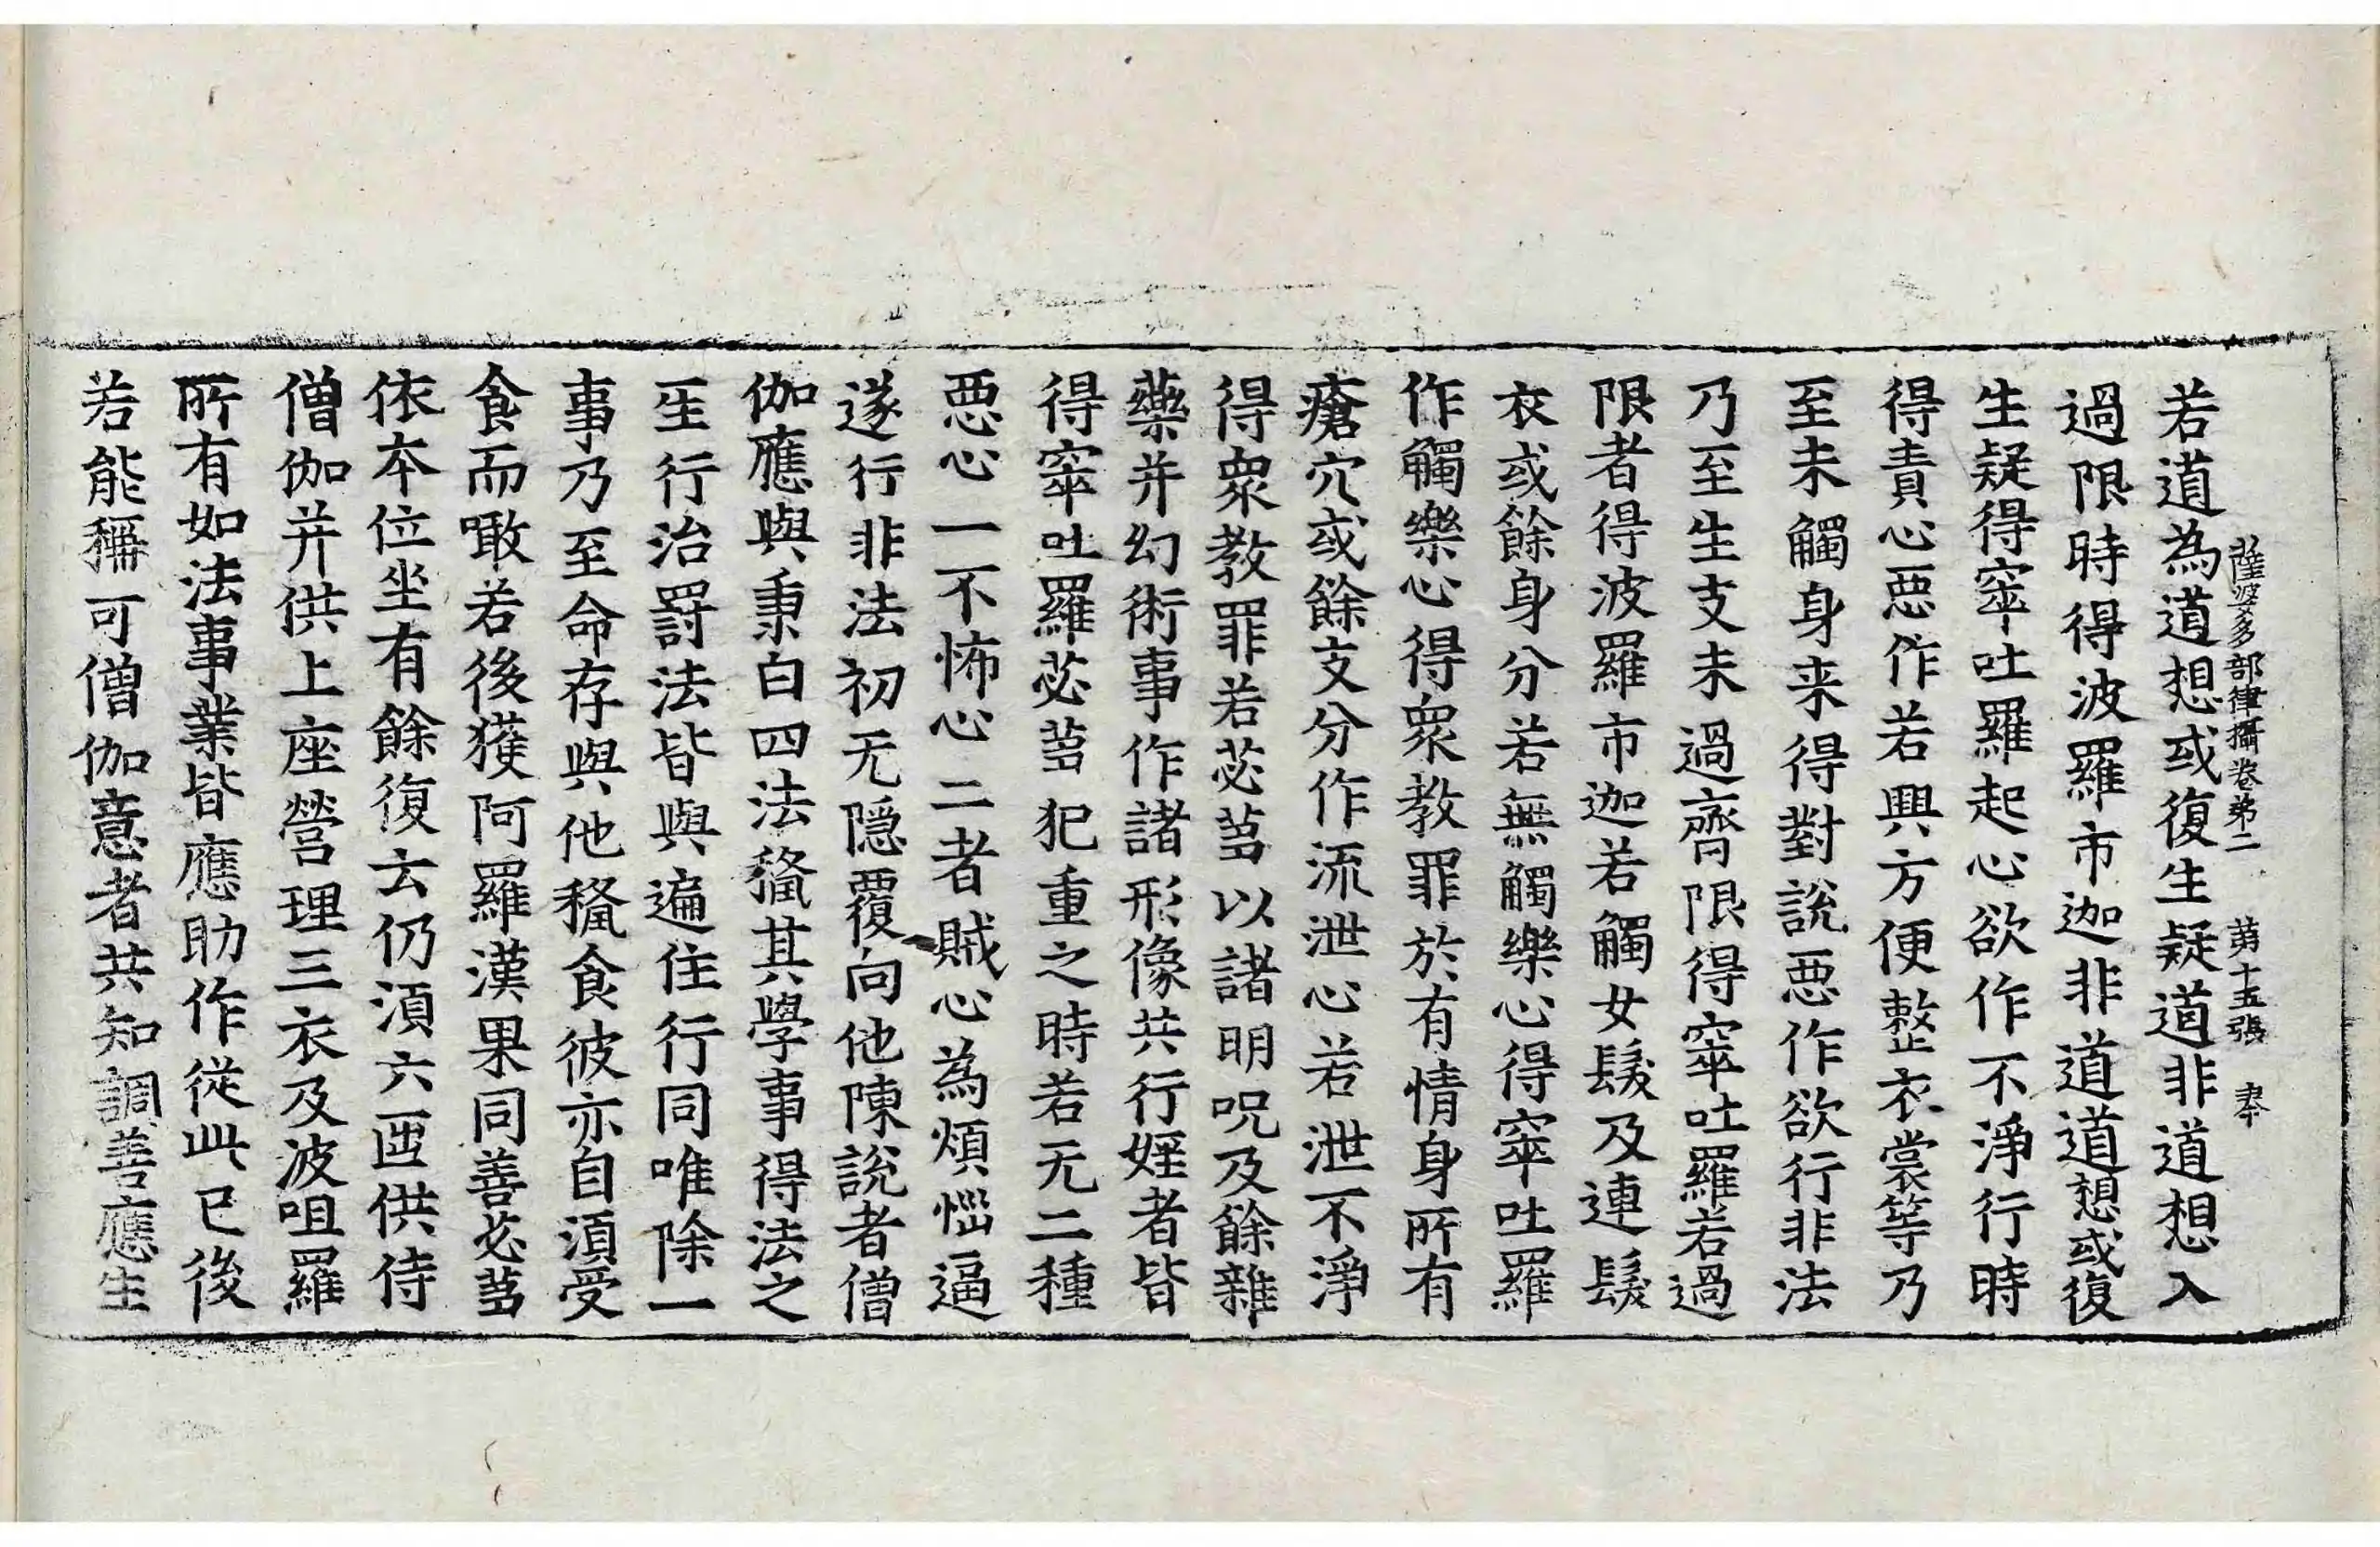 薩婆多部律攝卷第二　第十五張
若道為道想或復生疑道非道想入
過限時得波羅市迦非道道想或復
生疑得窣吐羅起心欲作不淨行時
得責心惡作若興方便整衣裳等乃
至未觸身来得對說惡作欲行非法
乃至生支未過齊限得窣吐羅若過
限者得波羅市迦若觸女髮及連髮
衣或餘身分若無觸樂心得窣吐羅
作觸樂心得衆教罪於有情身所有
瘡穴或餘支分作流泄心若泄不淨
得衆教罪若苾蒭以諸明呪及餘雜
藥并幻術事作諸形像共行婬者皆
得窣吐羅苾蒭犯重之時若无二種
惡心一不怖心二者賊心為煩惱逼
遂行非法初无隱覆向他陳說者僧
伽應與秉白四法授其學事得法之
後行治罰法皆與遍住行同唯除一
事乃至命存與他授食彼亦自須受
食而噉若後獲阿羅漢果同善苾蒭
依本位坐有餘復云仍須六匝供侍
僧伽并供上座營理三衣及波咀羅
所有如法事業皆應助作從此已後
若能稱可僧伽意者共知調善應生